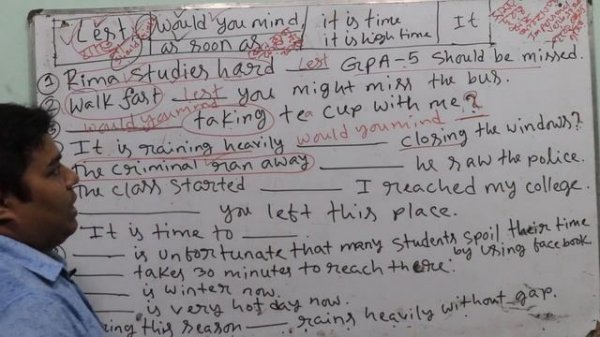 Lest would you mind, it is time It
as soon as it is high time
① Rima studies hard lest GPA-5 should be missed.
② Walk fast lest you might miss the bus.
③ would you mind taking tea cup with me?
It is raining heavily would you mind closing the windows?
The criminal ran away ______ he saw the police.
The class started ______ I reached my college.
______ you left this place.
It is time to ______.
______ is unfortunate that many students spoil their time by using facebook
______ takes 30 minutes to reach there.
______ is winter now.
______ is very hot day now.
this season ______ rains heavily without gap.